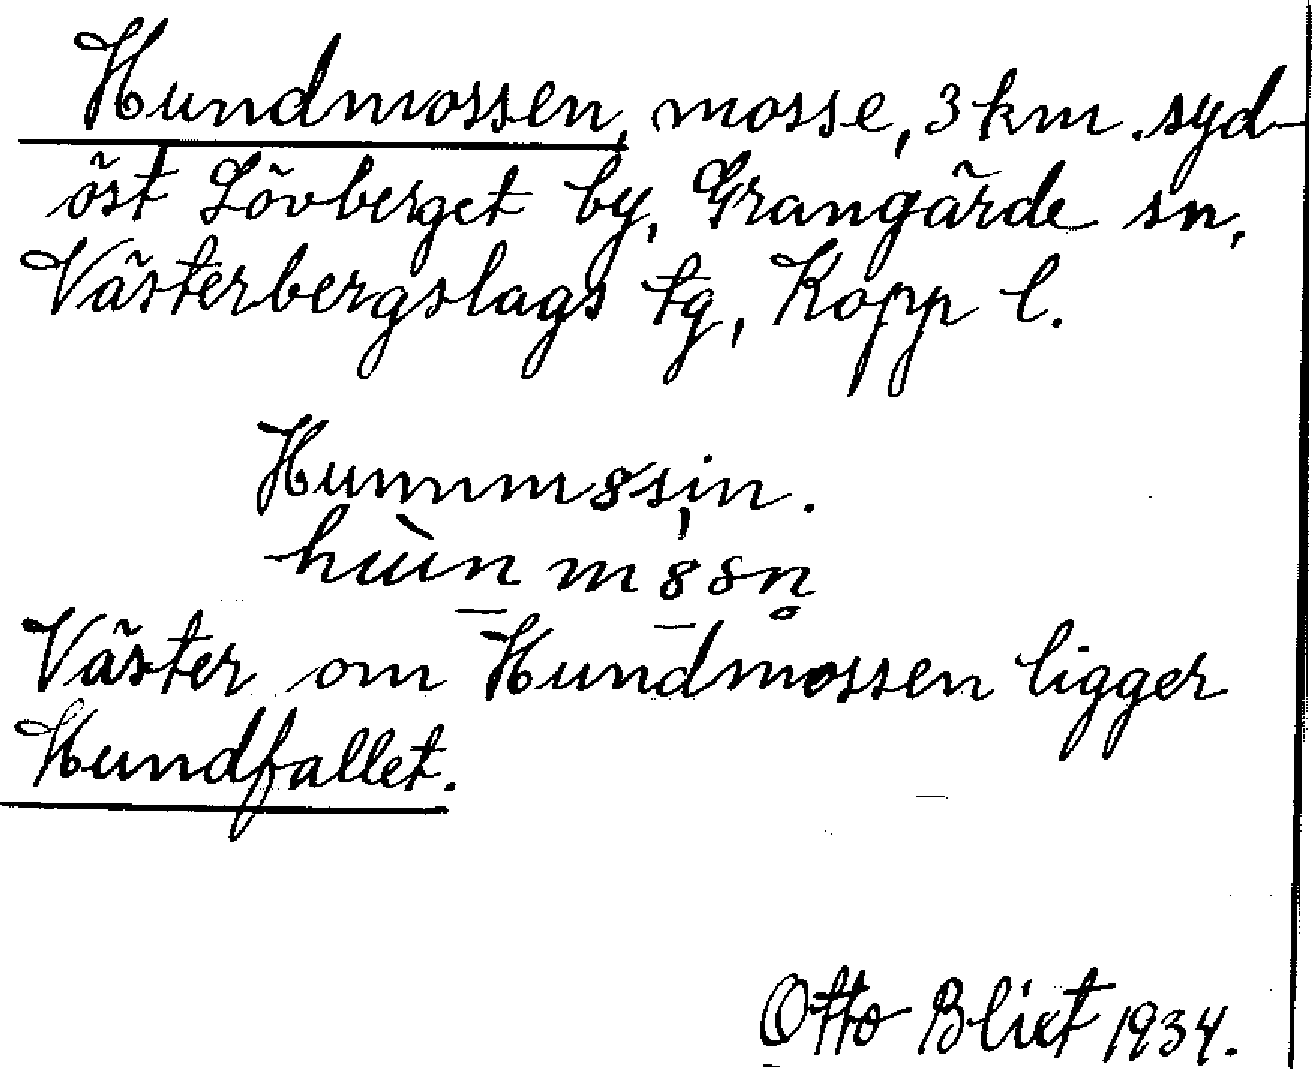 Hundmossen, mosse, 3 km. syd-
öst Lövberget by, Grangärde sn,
Västerbergslags tg, Kopp l.
Hunnm8sin.
hùn m8sn̥
Väster om Hundmossen ligger
Hundfallet.
Otto Blixt 1934.